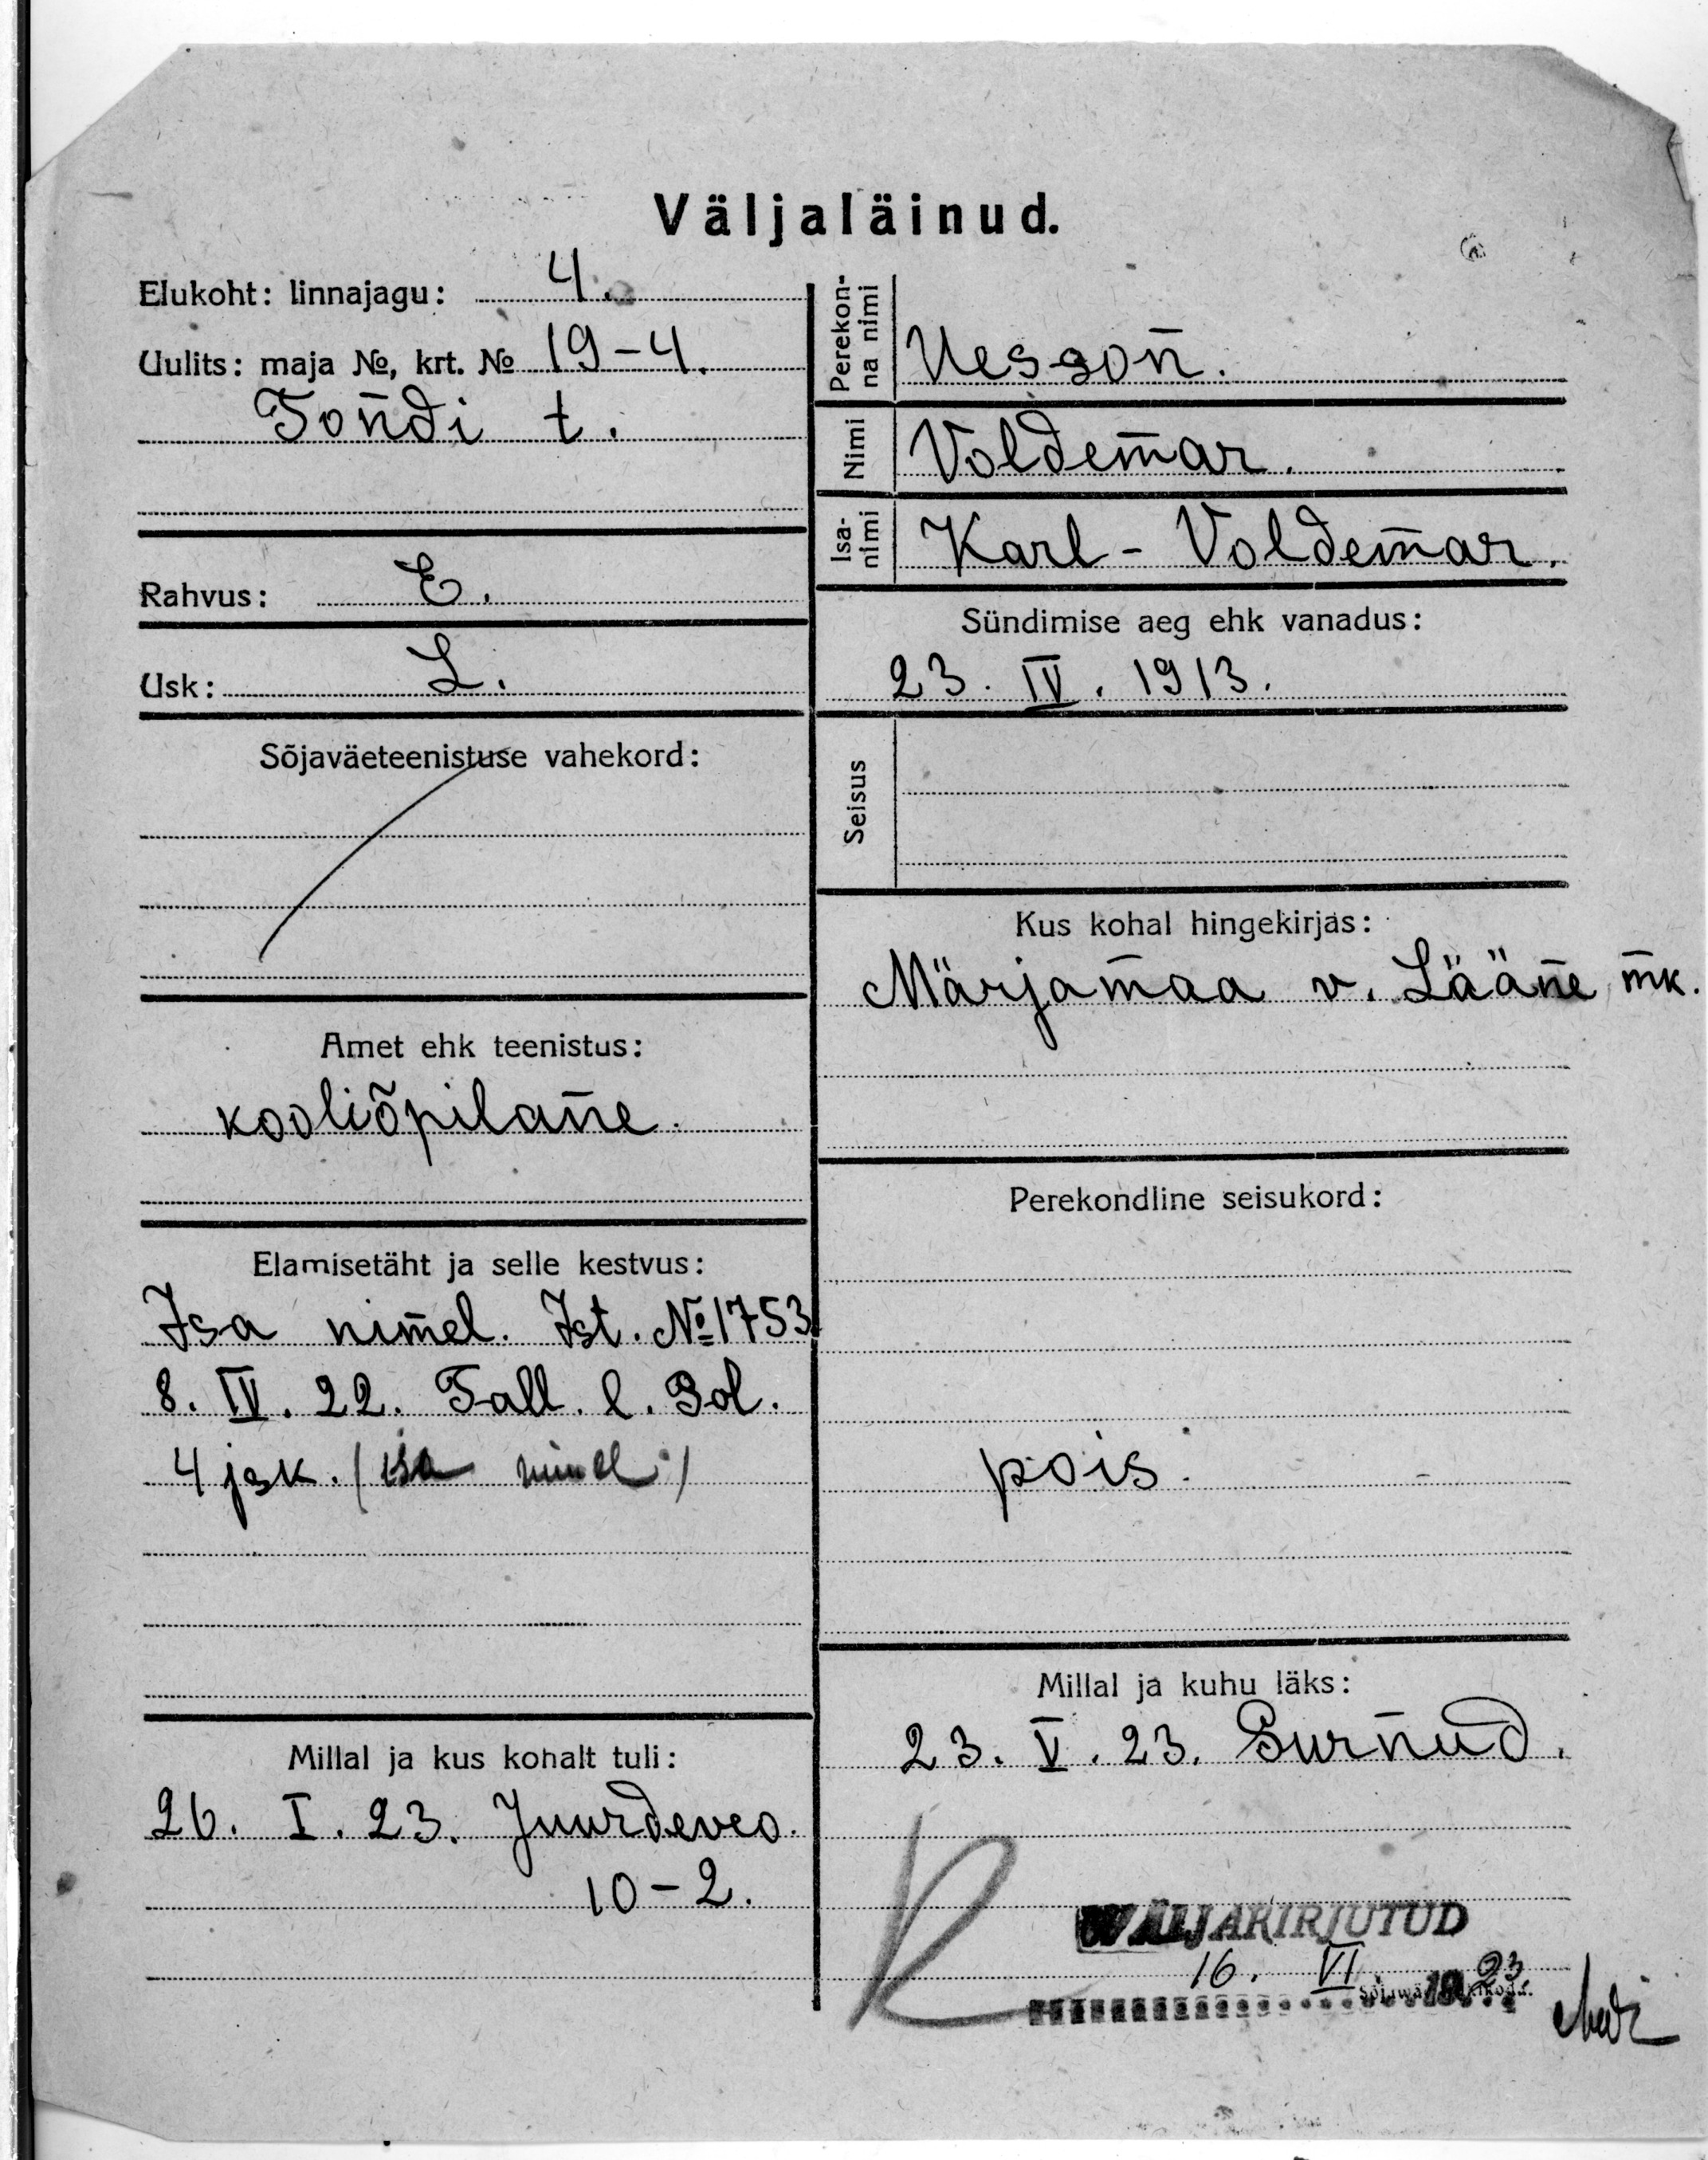 Väljaläinud.
Elukoht: linnajagu: 4.
Uulits: maja №, krt. № 19-4.
Tondi t.
Rahvus: E.
Usk: L.
Sõjaväeteenistuse vahekord:
Amet ehk teenistus:
kooliõpilane.
Elamisetäht ja selle kestvus:
Isa nimel. Ist. №1753
8. IV. 22. Tall. l. Pol.
4 jsk. (isa nimel)
Millal ja kus kohalt tuli:
26. I. 23. Juurdeveo.
10-2.
Perekon-
na nimi
Uesson.
Nimi
Voldemar.
Isa-
nimi
Karl-Voldemar.
Sündimise aeg ehk vanadus:
23. IV. 1913.
Seisus
Kus kohal hingekirjas:
Märjamaa v. Lääne mk.
Perekondline seisukord:
pois.
Millal ja kuhu läks:
23. V. 23. Surnud.
WÄLJAKIRJUTUD
16. VI 1923.